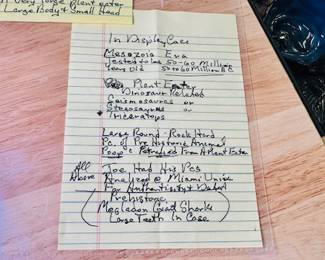 A Very Large Plant eater
Large Body & Small Head
In Display Case
Mesozoia Era
50-60 Million
Years Old 50 to 60 Million B.C.
Plant Eater
Dinosaur Related
Seismosaurus or
Stegosaurus or
Triceratops
Large Round - Rock Hard
Pc. of Pre Historic Animal
Poop Petrified From A Plant Eater
All Above
Joe Had His Pcs
Analized @ Miami Univ.
For Authenticity & Dated
Prehistoic
Megladon Great Sharks
Large Teeth In Case